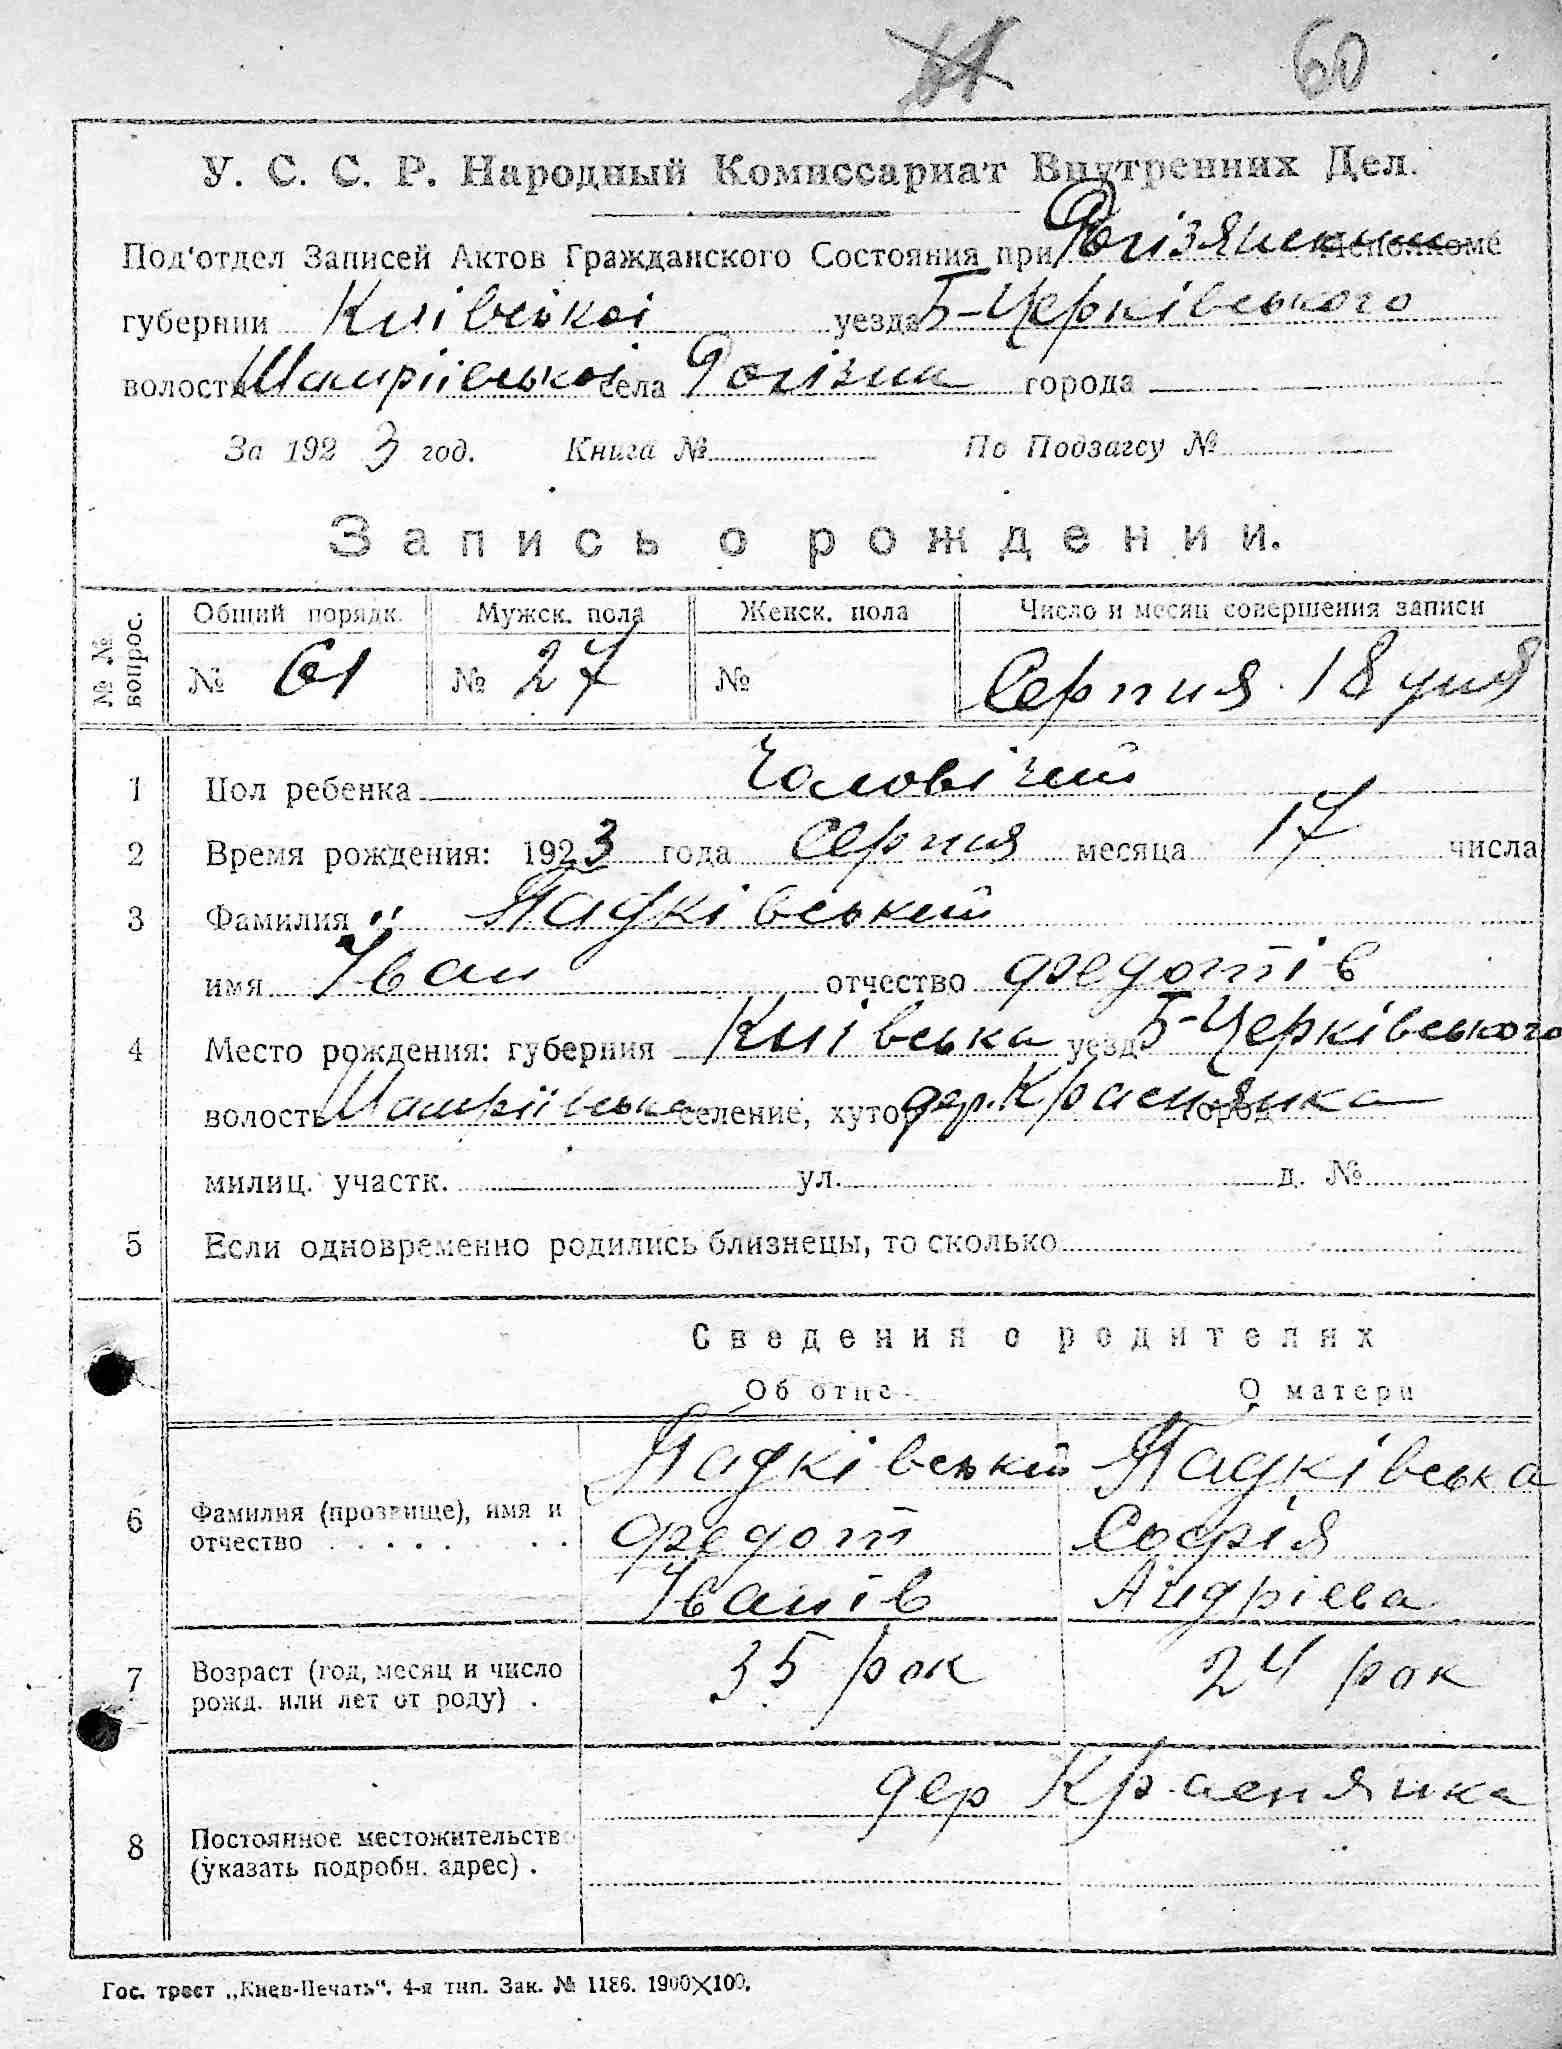 60
У. С. С. Р. Народный Комиссариат Внутренних Дел.
Под'отдел Записей Актов Гражданского Состояния при Рогізянським Исполкоме
губернии Київської уезда Б-Церківського
волости Шамріївської села Рогізни города
За 1923 год. Книга № По Подзагсу №
Запись о рождении.
№ № вопрос. Общий порядк. Мужск. пола Женск. пола Число и месяц совершения записи
№ 61 № 27 № Серпня 18 дня
1 Пол ребенка Чоловічий
2 Время рождения: 1923 года Серпня месяца 17 числа
3 Фамилия Падківський
имя Іван отчество Федотів
4 Место рождения: губерния Київська уезд Б-Церківського
волость Шамріївська селение, хутор дер. Краснянка город
милиц. участк. ул. д. №
5 Если одновременно родились близнецы, то сколько
Сведения о родителях
Об отце О матери
Падківський Падківська
6 Фамилия (прозвище), имя и отчество Федот Софія
Іванів Андрієва
7 Возраст (год, месяц и число рожд. или лет от роду) . 35 рок 24 рок
дер Краснянка
8 Постоянное местожительство (указать подробн. адрес) .
Гос. трест „Киев-Печать“. 4-я тип. Зак. № 1186. 1900×100.